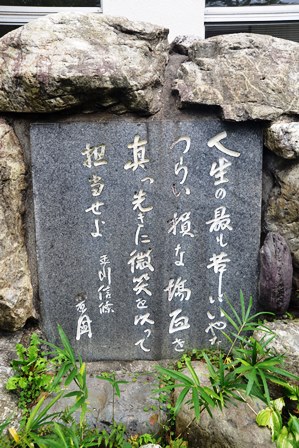 人生の最も苦しいいやな
つらい損な場面を
真っ先きに微笑を以って
担当せよ
平川信